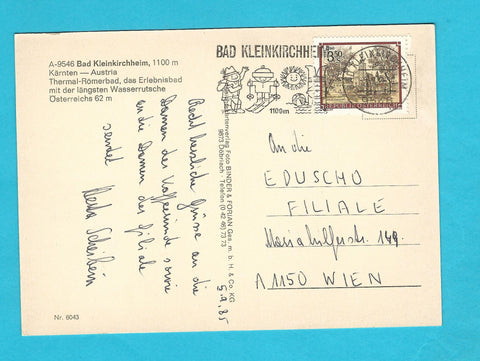 A-9546 Bad Kleinkirchheim, 1100 m
Kärnten — Austria
Thermal-Römerbad, das Erlebnisbad
mit der längsten Wasserrutsche
Österreichs 62 m
BAD KLEINKIRCHHEIM
1100m
3.50
REPUBLIK ÖSTERREICH
Recht herzliche Grüsse an die
Damen der Kaffeerunde sowie
an die Damen der Filiale
sendet
5.9.85
Kartenverlag Foto BINDER & FORIAN Ges. m. b. H. & Co. KG
9873 Döbriach · Telefon (0 42 46) 73 73
An die
EDUSCHO
FILIALE
Mariahilferstr. 149.
A 1150 WIEN
Nr. 6043